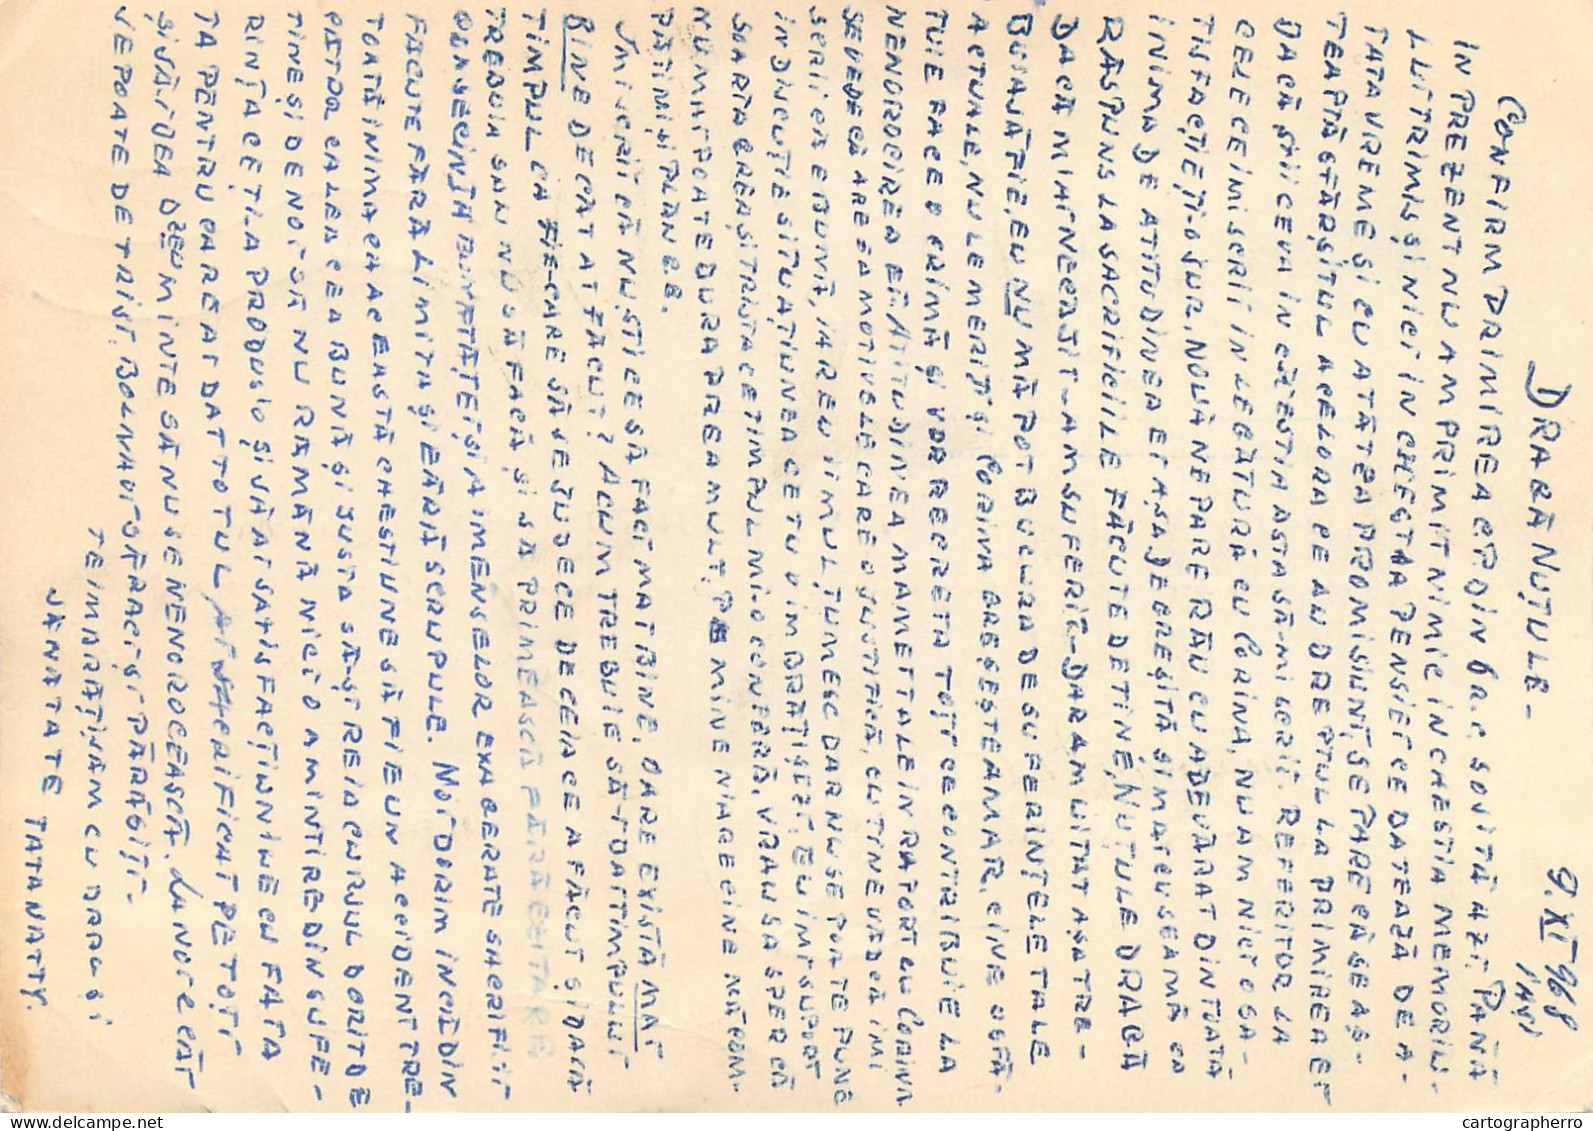 9.XI 968
IAȘI
DRAGĂ NUȚULE-
CONFIRM PRIMIREA C.P. DIN 6 a.c. SOSITĂ AZI. PÂNĂ
IN PREZENT NU AM PRIMIT NIMIC IN CHESTIA MEMORIU-
LUI TRIMIS ȘI NICI IN CHESTIA PENSIEI CE DATEAZĂ DE A-
TATA VREME ȘI CU ATÂTEA PROMISIUNI, SE PARE CĂ SE AȘ-
TEAPTĂ SFÂRȘITUL ACELORA CE AU DREPTUL LA PRIMIREA EI
DACĂ ȘTII CEVA IN CHESTIA ASTA SĂ-MI SCRII. REFERITOR LA
CELE CE IMI SCRII IN LEGĂTURĂ CU CORINA, NU AM NICI O SA-
TISFACȚIE, ȚI-O JUR. NOUĂ NE PARE RĂU CU ADEVĂRAT DIN TOATĂ
INIMA DE ATITUDINEA EI AȘA DE GREȘITĂ SI MAI CU SEAMĂ CA
RĂSPUNS LA SACRIFICIILE FĂCUTE DE TINE, NUȚULE DRAGĂ
DACĂ M-AI NECĂJIT-AM SUFERIT-DAR AM UITAT AȘA TRE-
BUIA SĂ FIE, EU NU MĂ POT BUCURA DE SUFERINȚELE TALE
ACTUALE, NU LE MERIȚI ȘI CORINA GREȘEȘTE AMAR. CINE OSFĂ-
TUIE FACE O CRIMĂ ȘI VOR REGRETA TOȚI CE CONTRIBUIE LA
NENOROCIREA EI. ATITUDINEA MAMEI TALE IN RAPORT CU CORINA
SE VEDE CĂ ARE SA MOTIVELE CARE O JUSTIFICĂ, CU TINE VĂD CĂ IMI
SCRII CĂ E BUNĂ, IAR EU II MULȚUMESC DAR NU SE POATE PUNE
IN DISCUȚIE SITUAȚIUNEA CE TU O IMBRĂȚIȘEZI. EU IMI SUPORT
SOARTA GREA SI TRISTA CE TIMPUL MI-O CONFERĂ. VREAU SA SPER CĂ
NU MAI POATE DURA PREA MULT. PE MINE NIMENI NU MĂ COM-
PĂTIMI ȘI PLÂNGE.
IMI SCRII CĂ NU ȘTII CE SĂ FACI MAI BINE, OARE EXISTĂ MAI
BINE DECÂT AI FĂCUT? ACUM TREBUIE SĂ-I DAI TIMPULUI
TIMPUL CA FIE-CARE SĂ JUDECE DECEIACE A FĂCUT ȘI DACĂ
TREBUIA SAU NU SĂ FACĂ ȘI SĂ PRIMEASCĂ
CONSECINȚA BUNĂTĂȚEI ȘI A IMENSELOR EXAGERATE SACRIFICII
FĂCUTE FĂRĂ LIMITA ȘI FĂRĂ SCRUPULE. NOI DORIM INCĂ DIN
TOATĂ INIMA CA ACEASTĂ CHESTIUNE SĂ FIE UN ACCIDENT TRE-
CĂTOR CALEA CEA BUNĂ ȘI JUSTA SĂ-ȘI REIA CURSUL DORIT DE
TINE ȘI DE NOI SĂ NU RĂMÂNĂ NICI O AMINTIRE DIN SUFE-
RINȚA CE ȚI-A PRODUS-O ȘI SĂ AI SATISFACȚIUNI CU FATA
TA PENTRU CARE AI DAT TOTUL AI SACRIFICAT PE TOȚI
SI SĂ-I DEA D-ZEU MINTE SĂ NU SE NENOROCEASCĂ. LA NOI E CÂT
VE POATE DE TRIST. BOLNAVI SĂRACI ȘI PĂRĂSIȚI-
TE IMBRĂȚIȘĂM CU DRAG SI
SĂNĂTATE TATA NATTY.
cartographerro